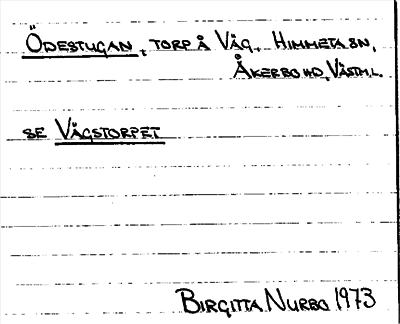 Ödestugan, torp å Väg, Himmeta sn,
Åkerbo hd, Västm.l.
se Vägstorpet
Birgitta Nurbo 1973